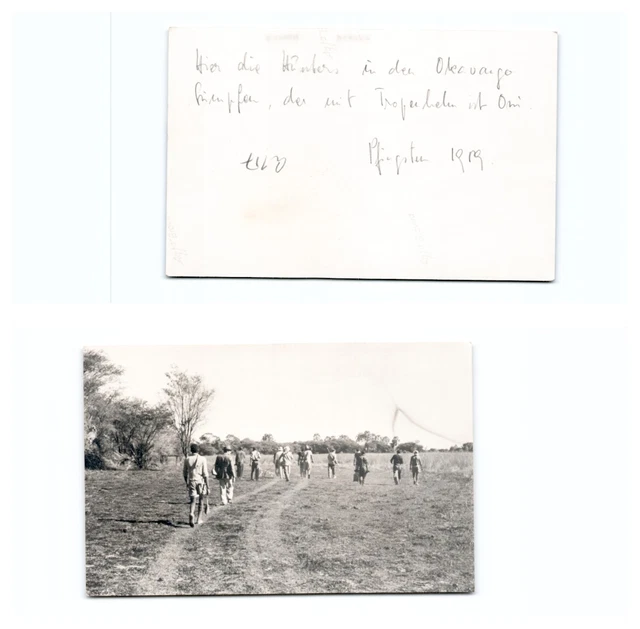 Hier die Hunters in den Okavango
Sümpfen, der mit Tropenhelm ist Omi.
Pfingsten 1959